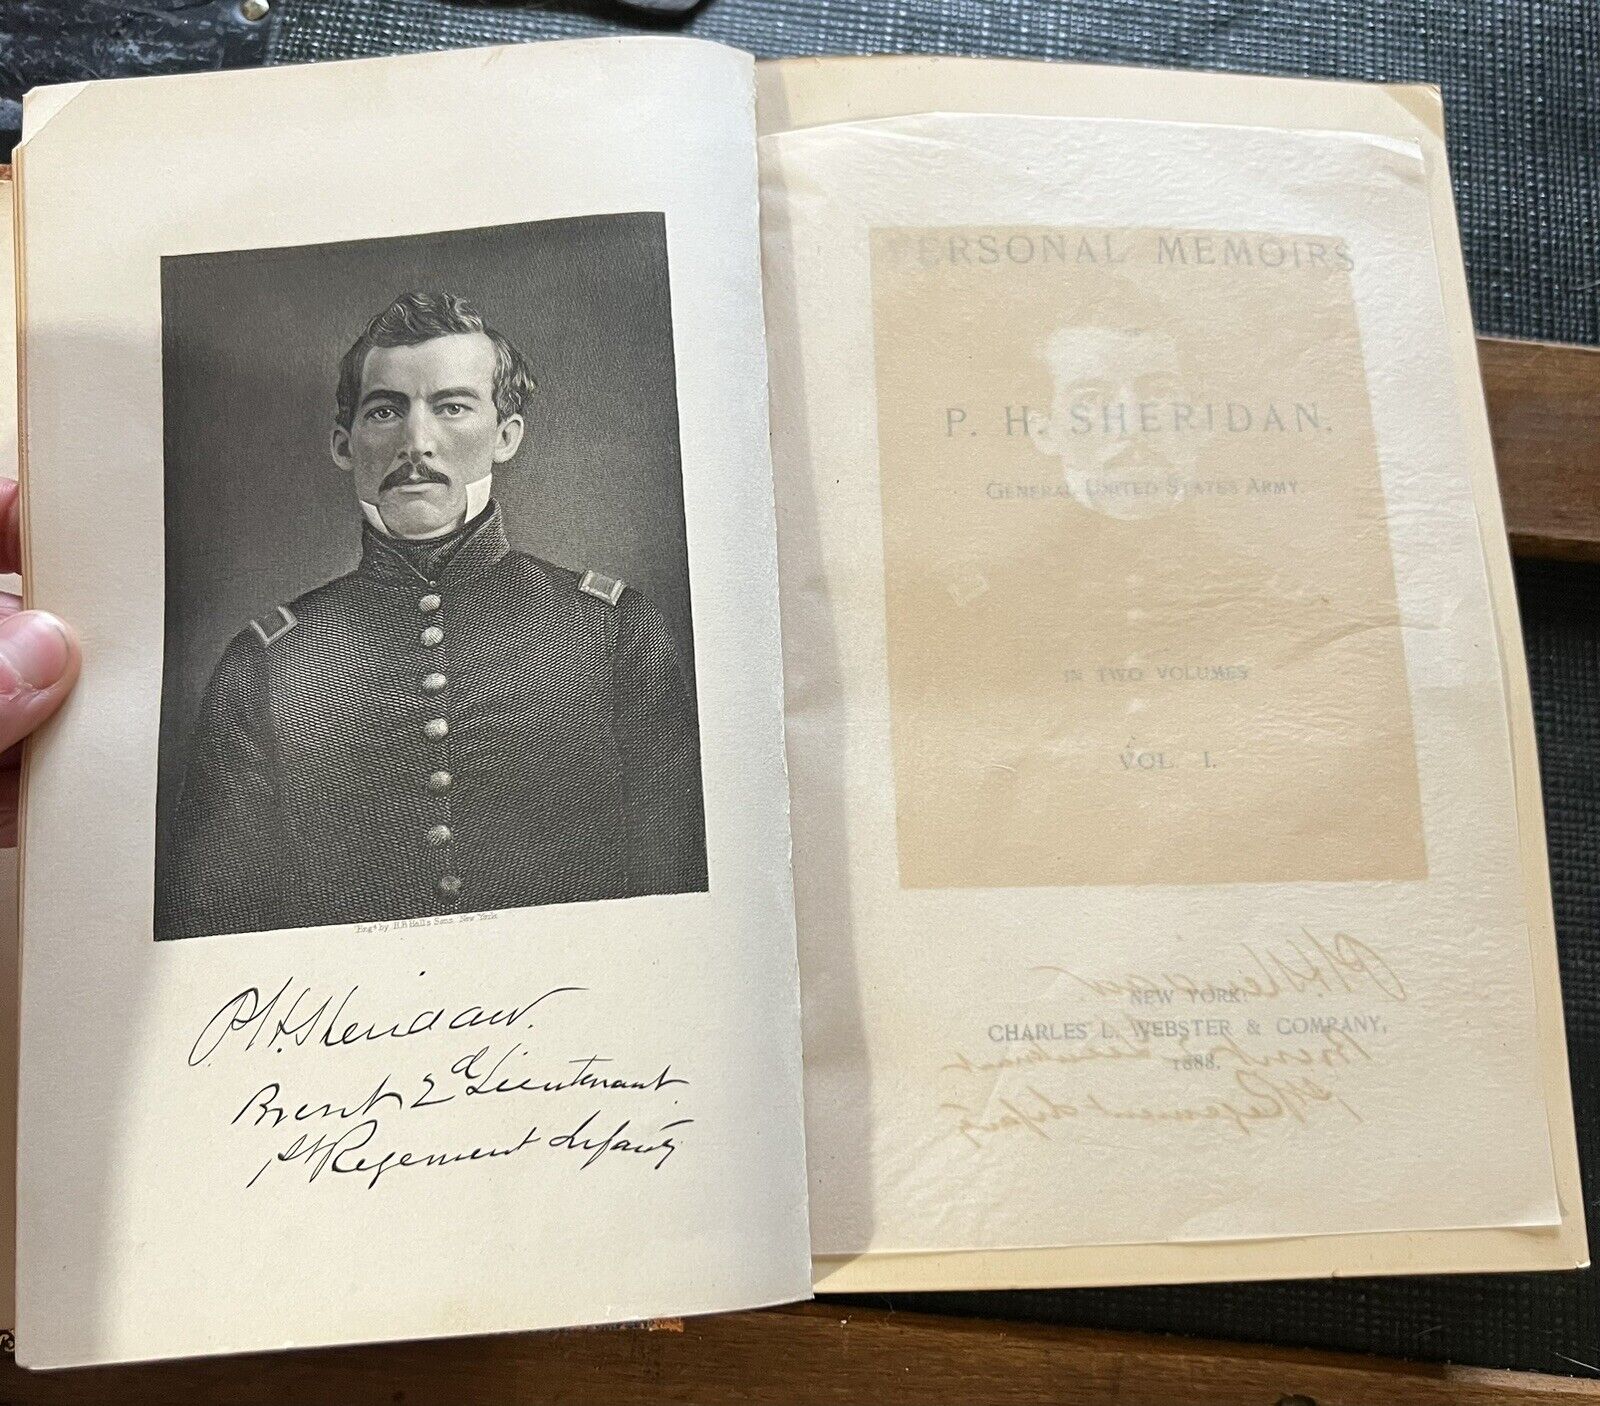 Engd by H.B Hall's Sons New York
P.H. Sheridan.
Brevet 2d Lieutenant
1st Regement Infanty
PERSONAL MEMOIRS
P. H. SHERIDAN.
GENERAL UNITED STATES ARMY.
IN TWO VOLUMES
VOL. I.
NEW YORK:
CHARLES L. WEBSTER & COMPANY,
1888.